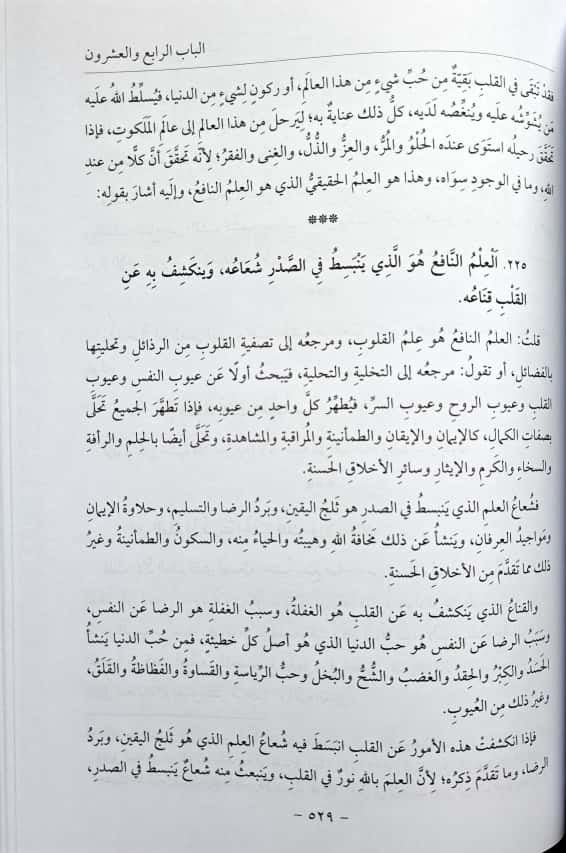 الباب الرابع والعشرون
فقدْ تَبْقَى في القلبِ بَقِيَّةٌ مِن حُبِّ شيءٍ مِن هذا العالَمِ، أو ركونٍ لِشيءٍ مِن الدنيا، فيُسلِّطُ اللهُ علَيه
مَن يُشوِّشُه علَيه ويُنغِّصُه لَدَيه، كلُّ ذلك عنايةٌ به؛ لِيَرحلَ مِن هذا العالمِ إلى عالَمِ المَلَكوتِ، فإذا
تحَقَّقَ رحيلُه استَوَى عندَه الحُلْوُ والمُرُّ، والعِزُّ والذُّلُّ، والغِنى والفقرُ؛ لِأنَّه تَحقَّقَ أنَّ كلًّا مِن عندِ
اللهِ، وما في الوجودِ سِوَاه، وهذا هو العِلمُ الحقيقيُّ الذي هو العِلمُ النافعُ، وإلَيه أشارَ بقولِه:
***
٢٢٥. اَلْعِلْمُ النَّافعُ هُوَ الَّذِي يَنْبَسِطُ فِي الصَّدْرِ شُعَاعُه، وَيَنكَشِفُ بِهِ عَنِ
القَلْبِ قِنَاعُه.
قلتُ: العلمُ النافعُ هُو عِلمُ القلوبِ، ومرجعُه إلى تصفيةِ القلوبِ مِن الرذائلِ وتحليتِها
بالفضائلِ، أو تقولُ: مرجعُه إلى التخليةِ والتحليةِ، فيَبحثُ أولًا عَن عيوبِ النفسِ وعيوبِ
القلبِ وعيوبِ الروحِ وعيوبِ السرِّ، فيُطهِّرُ كلَّ واحدٍ مِن عيوبِه، فإذا تَطهَّرَ الجميعُ تَحَلَّى
بصفاتِ الكمالِ، كالإيمانِ والإيقانِ والطمأنينةِ والمُراقبةِ والمشاهدةِ، وتَحلَّى أيضًا بالحِلمِ والرأفةِ
والسخاءِ والكَرمِ والإيثارِ وسائرِ الأخلاقِ الحَسنةِ.
فشُعاعُ العلمِ الذي يَنبسطُ في الصدرِ هو ثَلجُ اليقينِ، وبَردُ الرضا والتسليمِ، وحلاوةُ الإيمانِ
ومَواجيدُ العِرفانِ، ويَنشأُ عَن ذلك مَخافةُ اللهِ وهيبتُه والحياءُ مِنه، والسكونُ والطمأنينةُ وغيرُ
ذلك مما تَقدَّمَ مِن الأخلاقِ الحَسنةِ.
والقناعُ الذي يَنكشفُ به عَن القلبِ هُو الغفلةُ، وسببُ الغفلةِ هو الرضا عَن النفسِ،
وسَبَبُ الرضا عَن النفسِ هُو حبُّ الدنيا الذي هو أصلُ كلِّ خطيئةٍ، فمِن حُبِّ الدنيا يَنشأُ
الحَسَدُ والكِبْرُ والحِقدُ والغضبُ والشُّحُّ والبُخلُ وحبُّ الرِّياسةِ والقَساوةُ والفَظاظةُ والقَلَقُ،
وغيرُ ذلك مِن العُيوبِ.
فإذا انكشفتْ هذه الأمورُ عَن القلبِ انبَسَطَ فيه شُعاعُ العِلمِ الذي هُو ثَلجُ اليقينِ، وبَردُ
الرضا، وما تَقدَّمَ ذِكرُه؛ لِأنَّ العِلمَ باللهِ نورٌ في القلبِ، ويَنبعثُ مِنه شُعاعٌ يَنبسطُ في الصدرِ،
- ٥٢٩ -